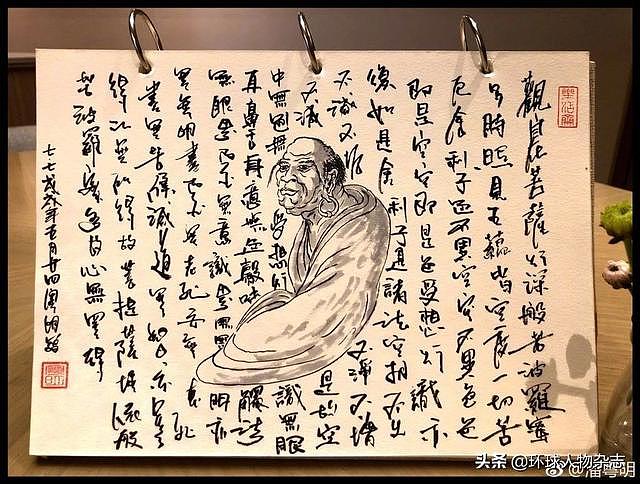 觀自在菩薩行深般若波羅蜜
多時照見五蘊皆空度一切苦
厄舍利子色不異空空不異色色
即是空空即是色受想行識亦
復如是舍利子是諸法空相不生
不滅不垢不淨不增
不減是故空
中無色無受想行識無眼
耳鼻舌身意無色聲味觸法
無眼界乃至無意識界無無明亦
無無明盡乃至無老死亦無老死
盡無苦集滅道無智亦無
得以無所得故菩提薩埵依般
若波羅蜜多故心無罣礙
戊戌年五月廿四粤明
头条 @环球人物杂志
@潘粤明